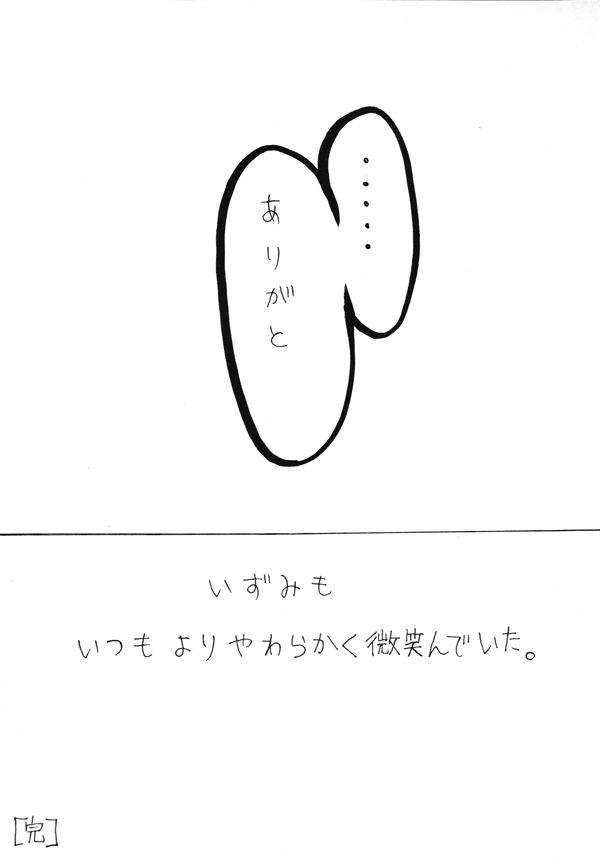 ・・・・・
ありがと
いずみも
いつもよりやわらかく微笑んでいた。
[完]